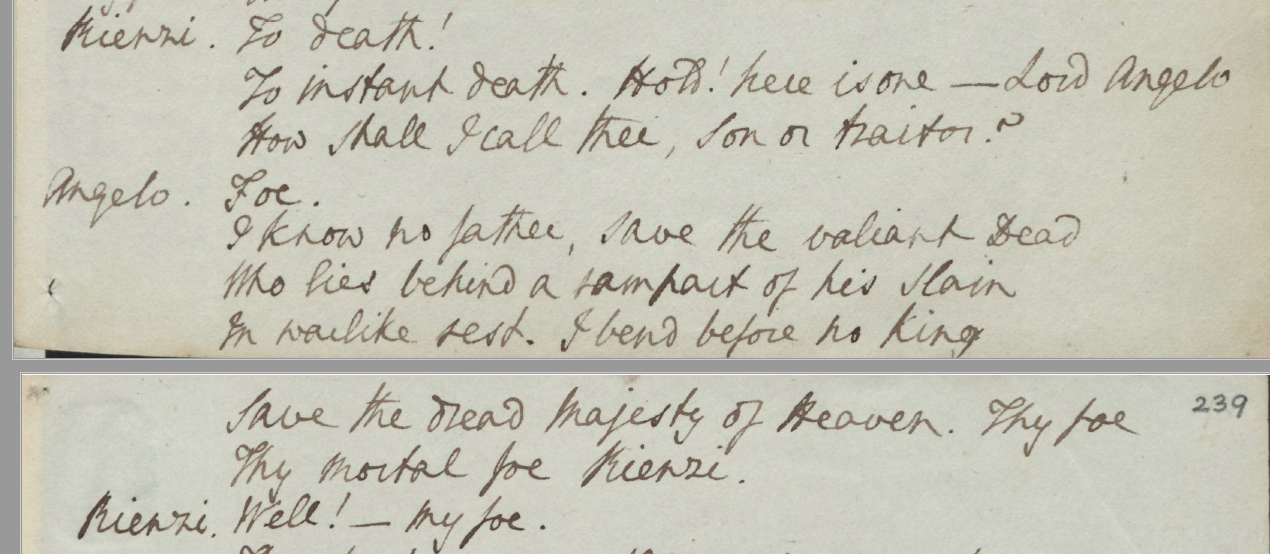 Rienzi. To death!
To instant death. Hold! here is one — Lord Angelo
How shall I call thee, Son or traitor?
Angelo. Foe.
I know no father, save the valiant Dead
Who lies behind a rampart of his Slain
In warlike rest. I bend before no King
Save the dread Majesty of Heaven. Thy foe
239
Thy mortal foe Rienzi.
Rienzi. Well! — My foe.